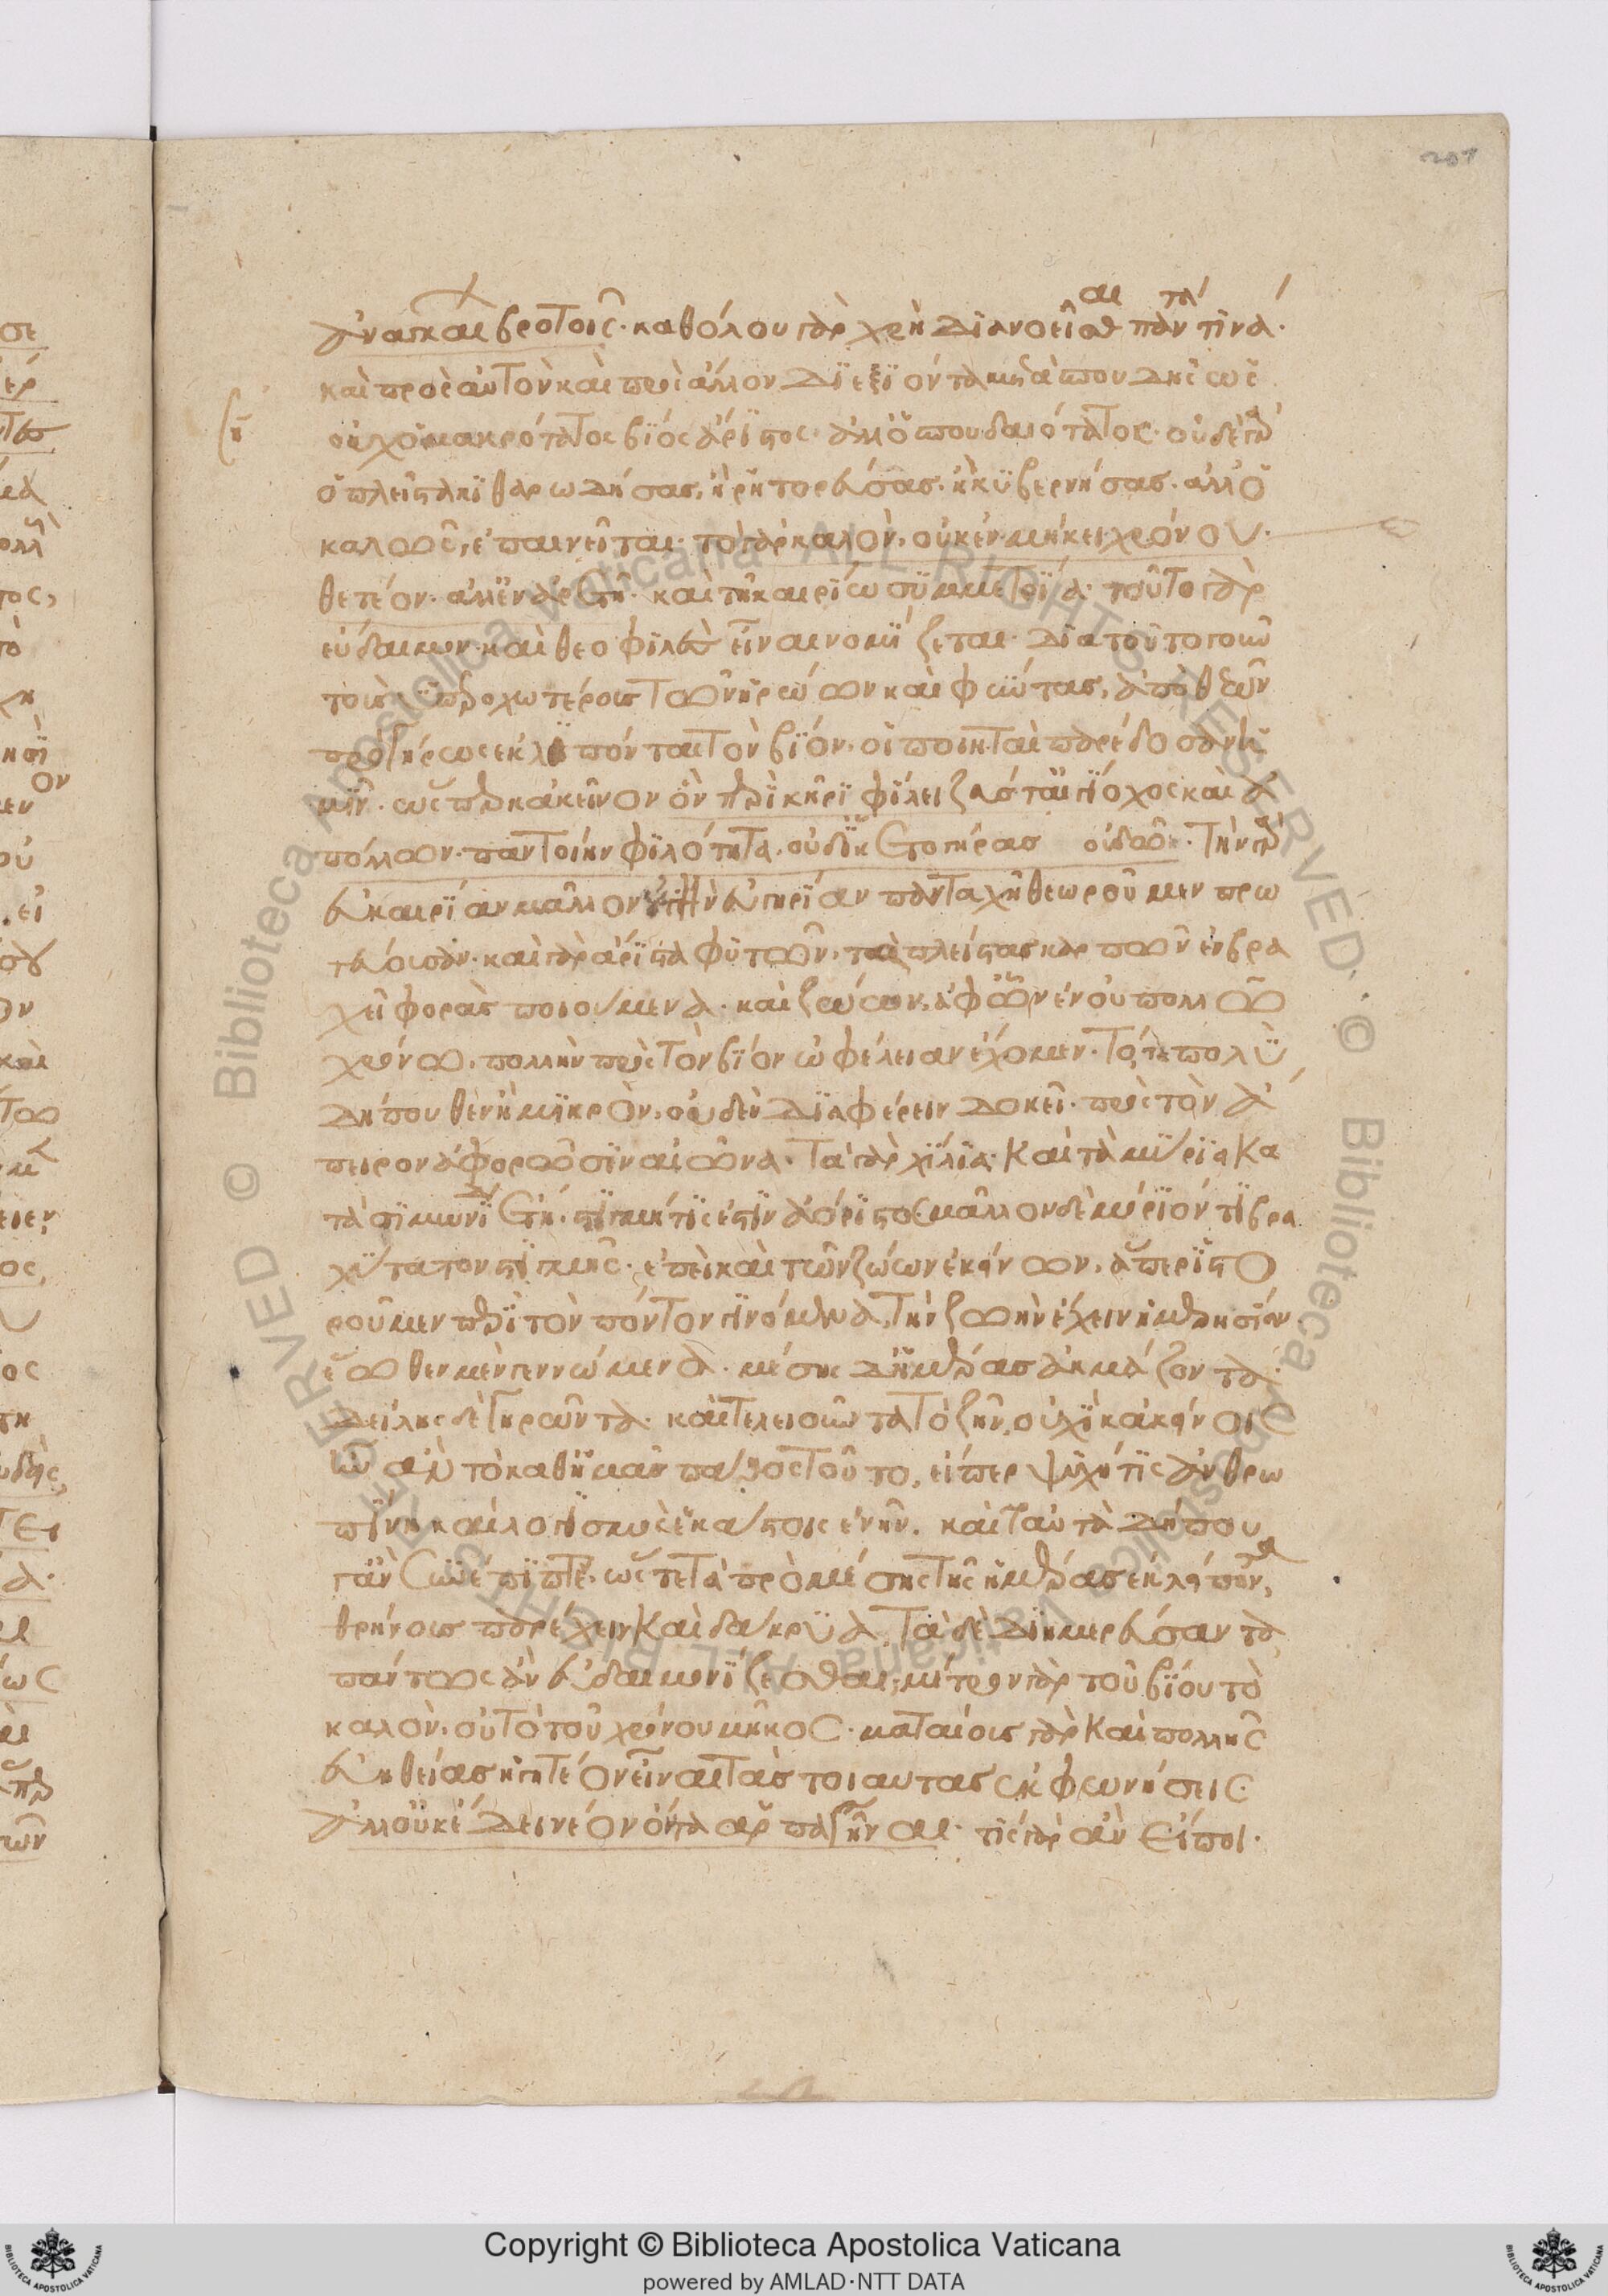 201
ἀνάγκαι βροτοῖς· καθόλου γὰρ χρὴ διανοεῖσθαι πάντα τινά·
καὶ πρὸς αὐτὸν καὶ πρὸς ἄλλον διεξιόντα μεθ' ἁπουδῆς ὡς
οὐχ ὁ μακρότατος βίος ἄριστος· ἀλλ' ὁ σπουδαιότατος· οὐδὲ γὰρ
ὁ πλεῖστα κιθαρωδήσας, ἢ ῥητορεύσας, ἢ κυβερνήσας· ἀλλ' ὁ
καλῶς, ἐπαινεῖται· τὸ γὰρ καλὸν, οὐκ ἐν μήκει χρόνου·
θετέον· ἀλλ' ἐν ἀρετῇ· καὶ τῇ καιρίω συμμετρία· τοῦτο γὰρ
εὔδαιμον καὶ θεοφιλὲς εἶναι νομίζεται· διὰ τοῦτο γοῦν
τοὺς ὑπεροχωτέρους τῶν ἡρώων καὶ φῦντας, ἀπὸ θεῶν
πρὸ γήρως ἐκλιπόντας τὸν βίον, οἱ ποιηταὶ παρέδοσαν ἡ
μῖν· ὥσπερ κἀκεῖνον ὃν περὶ κῆρι φίλει ζεύς τ' αἰγίοχος καὶ ἀ
πόλλων· παντοίην φιλότητα, οὐδ' ἵκετο γήρας οὐδὸν· τὴν γὰρ
εὐκαιρίαν μᾶλλον εὐγηρίαν πανταχῆ θεωροῦμεν πρω
τεύουσαν· καὶ γὰρ ἄριστα φυτῶν, τὰ πλείστας καρπῶν ἐν βρα
χεῖ φορὰς ποιούμενα· καὶ ζώων, ἀφ' ὧν ἐν οὐ πολλῶ
χρόνω, πολλὴν πρὸς τὸν βίον ὠφέλειαν ἔχομεν· τό τε πολὺ
δήπουθεν ἢ μικρὸν, οὐδὲν διαφέρειν δοκεῖ· πρὸς τὸν ἄ
πειρον ἀφορῶσιν αἰῶνα· τὰ γὰρ χίλια· καὶ τὰ μύρια κα
τὰ σιμωνίδην, στιγμή τίς ἐστιν ἀόριστος μᾶλλον δὲ μόριόν τι βρα
χύτατον στιγμῆς· ἐπεὶ καὶ τῶν ζώων ἐκείνων, ἅπερ ἱστο
ροῦμεν περὶ τὸν πόντον γινόμενα, τὴν ζωὴν ἔχειν ἡμερησίαν,
ἕωθεν μὲν γεννώμενα· μέσης δ' ἡμέρας ἀκμάζοντα·
δείλης δὲ γηρῶντα· καὶ τελειοῦντα τὸ ζῆν, οὐχὶ κἀκείνοις
ἦν ἂν τὸ καθ' ἡμᾶς πάθος τοῦτο, εἴπερ ψυχή τις ἀνθρω
πίνη καὶ λογισμὸς ἑκάστοις ἐνῆν, καὶ ταὐτὰ δήπου
γ' ἂν συνέπιπτε, ὥστε τὰ πρὸ μέσης τῆς ἡμέρας ἐκλείποντα,
θρήνους παρέχειν καὶ δάκρυα, τὰ δὲ διημερεύσαντα,
πάντως ἂν εὐδαιμονίζεσθαι; μέτρον γὰρ τοῦ βίου τὸ
καλὸν, οὐ τὸ τοῦ χρόνου μῆκος· ματαίους γὰρ καὶ πολλῆς
εὐηθείας ἡγητέον εἶναι τὰς τοιαύτας ἐκφωνήσεις·
ἀλλ' οὐκ ἔδει νέον ὄντα ἁρπαγῆναι· τίς γὰρ ἂν εἴποι·
Copyright © Biblioteca Apostolica Vaticana
powered by AMLAD·NTT DATA